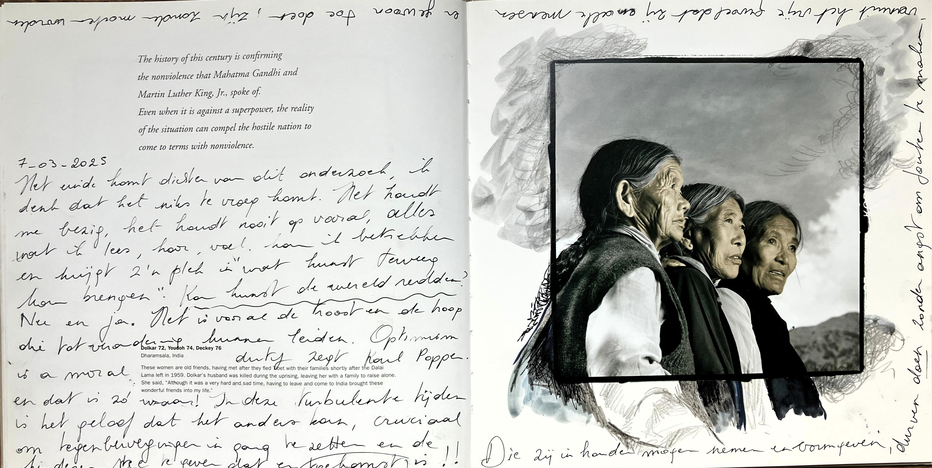 en gewoon toe doen, zijn zonder moeten worden
The history of this century is confirming
the nonviolence that Mahatma Gandhi and
Martin Luther King, Jr., spoke of.
Even when it is against a superpower, the reality
of the situation can compel the hostile nation to
come to terms with nonviolence.
7-03-2025
Het einde komt dichter van dit onderzoek, ik
denk dat het niks te vroeg komt. Het houdt
me bezig, het houdt nooit op vooral, alles
wat ik lees, hoor, voel. kan ik betrekken
en krijgt z'n plek in "wat kunst terweeg
kan brengen". Kan kunst de wereld redden?
Nee en ja. Het is vooral de troost en de hoop
die tot verandering kunnen leiden. Optimism
is a moral duty zegt Karl Popper.
Dolkar 72, Youdoh 74, Deckey 76
Dharamsala, India
These women are old friends, having met after they fled Tibet with their families shortly after the Dalai
Lama left in 1959. Dolkar's husband was killed during the uprising, leaving her with a family to raise alone.
She said, "Although it was a very hard and sad time, having to leave and come to India brought these
wonderful friends into my life."
en dat is zó waar! In deze turbulente tijden
is het geloof dat het anders kan, cruciaal
om tegenbewegingen in gang te zetten en de
te geven dat er toekomst is !!
Die zij in handen mogen nemen en vormgeven,
durven doen zonder angst om fouten te maken.
vanuit het vrije gevoel dat zij en alle mensen